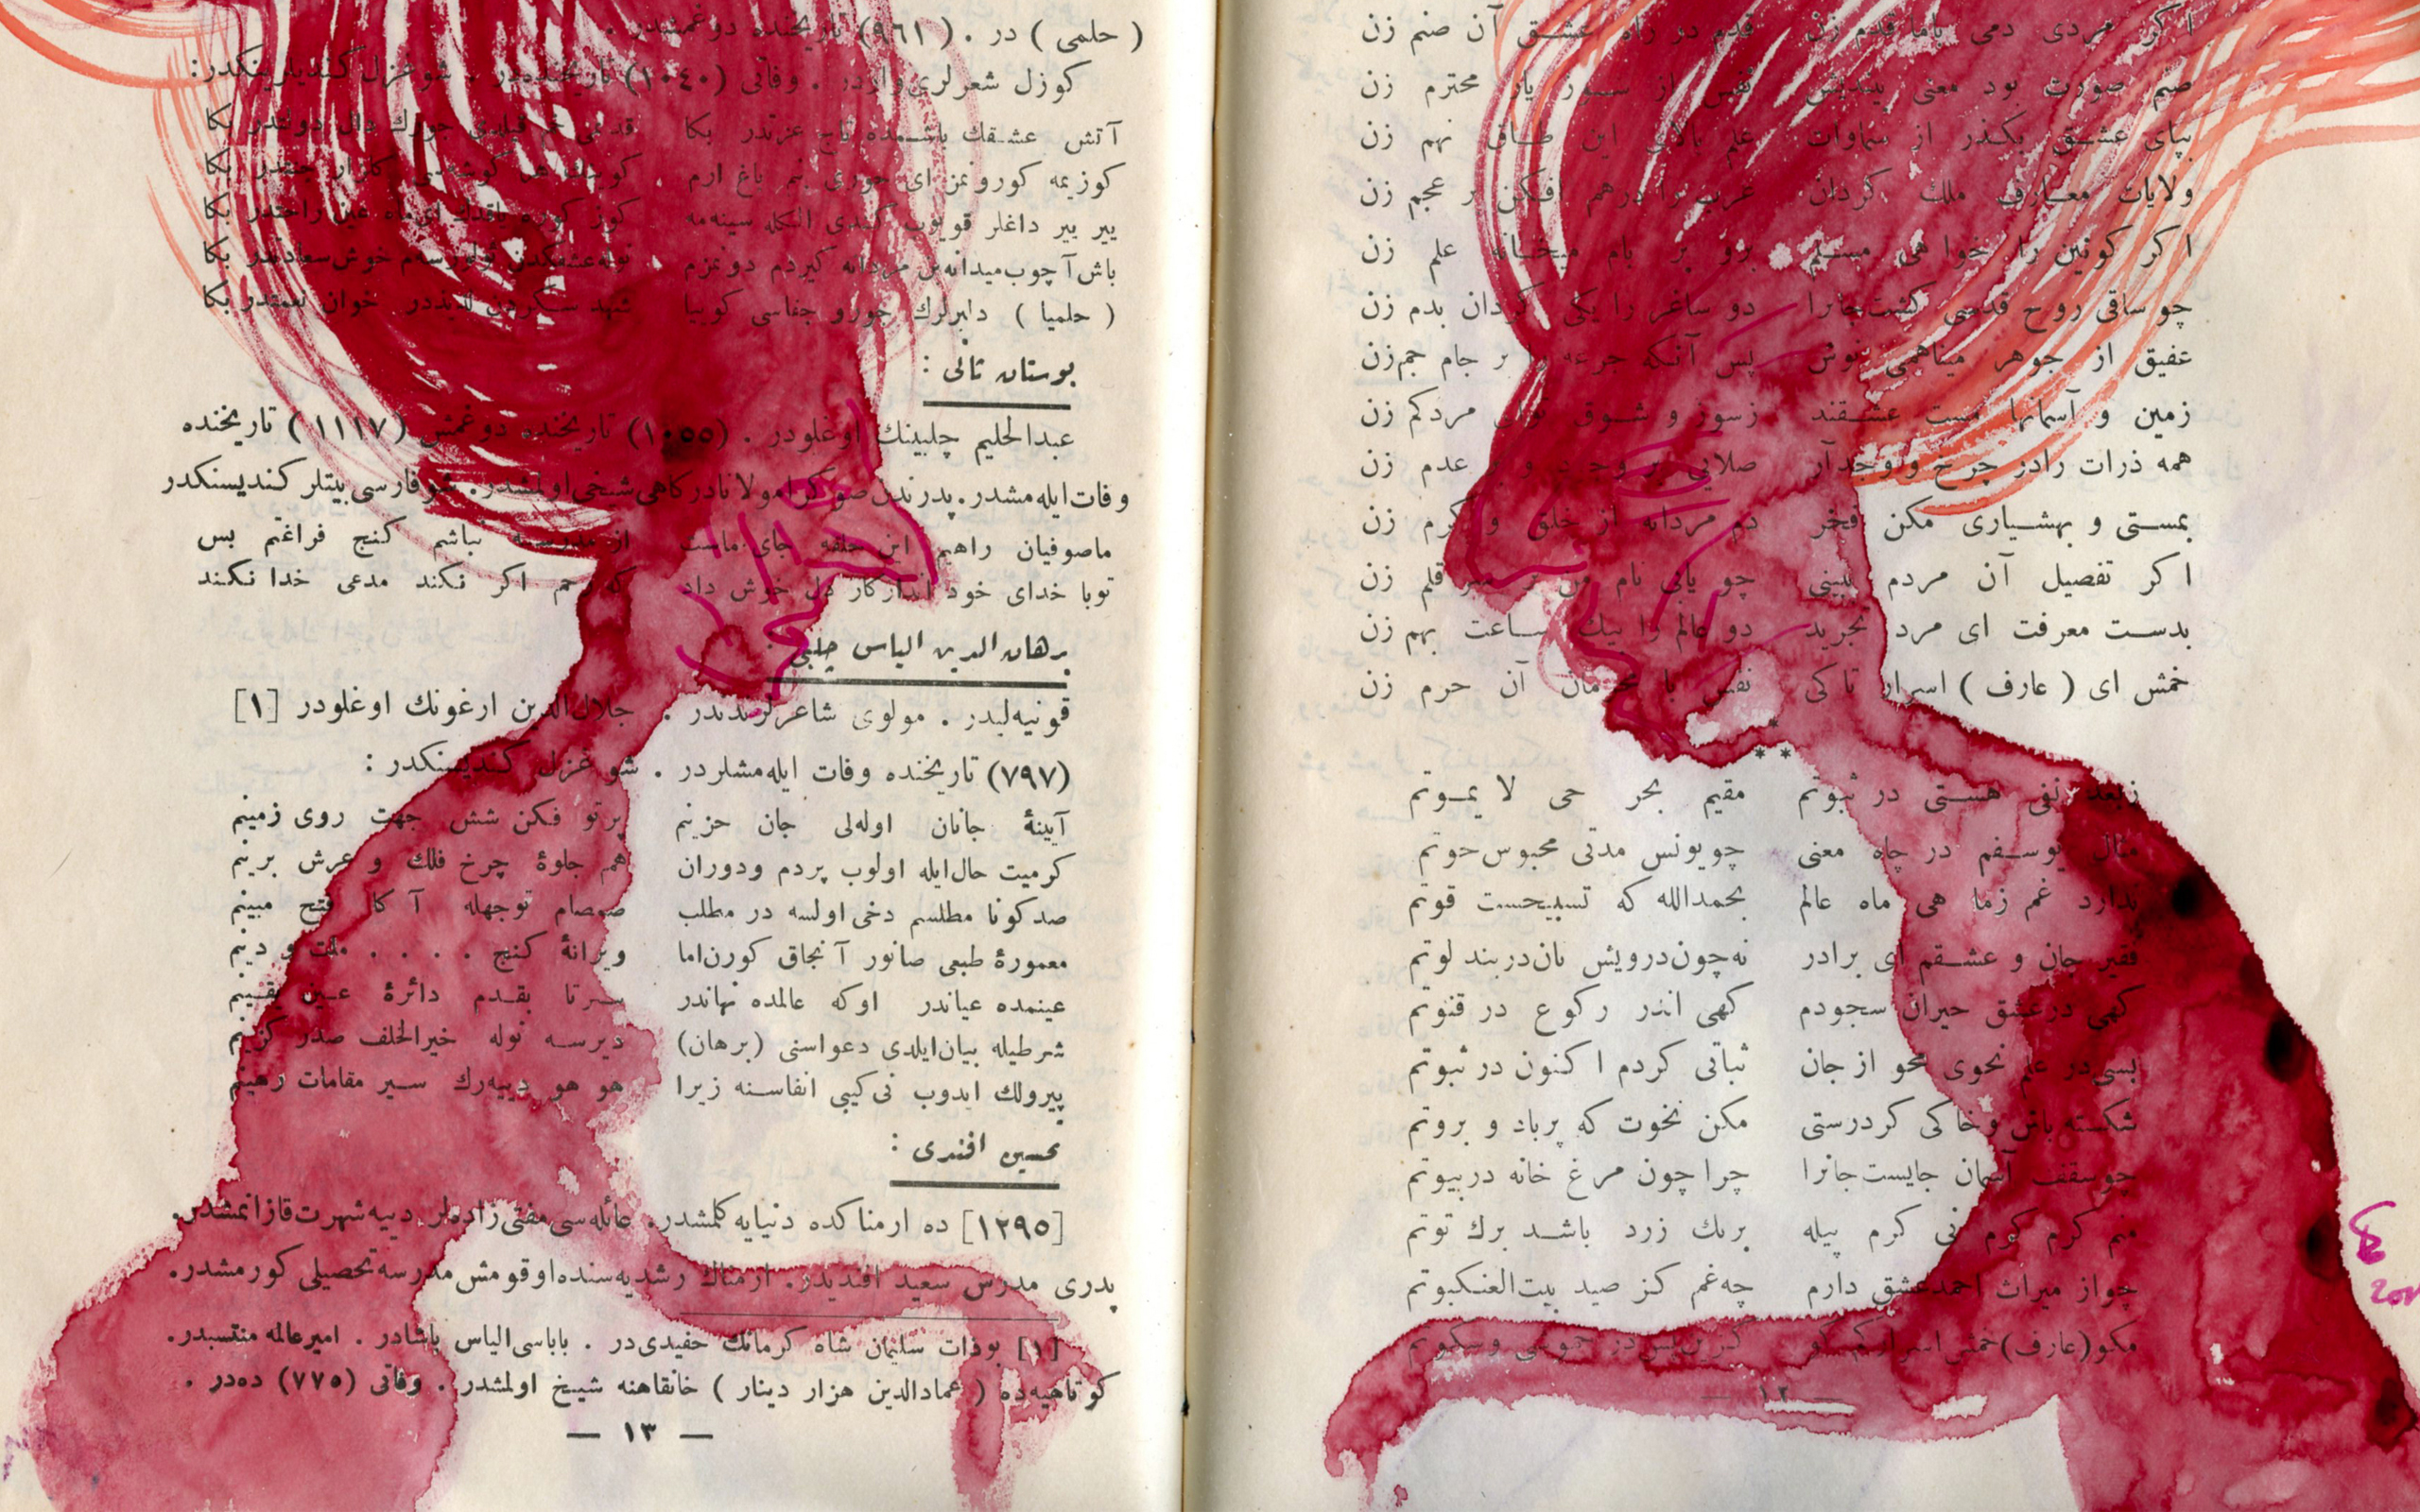 اکر مردی دمی باما قدم زن قدم در راه عشق آن صنم زن
صنم صورت بود معنی بیندیش نفس از سوز یار محترم زن
بپای عشق بکذر از سماوات علم بالای این طاق نهم زن
ولایات معارف ملك کردان عرب را درهم افکن بر عجم زن
اکر کونین را خواهی مسلم برو بر بام میخانه علم زن
چو ساقی روح قدسی کشت جانرا دو ساغر را یکی کردان بدم زن
عقیق از جوهر مینا همی نوش پس آنکه جرعه را بر جام جم زن
زمین و آسمانها مست عشقند زسوز و شوق نوای مردکم زن
همه ذرات رادر چرخ و وجد آر صلایی بر وجود و بر عدم زن
بمستی و بهشیاری مکن فخر دم مردانه از خلق و کرم زن
اکر تفصیل آن مردم ببینی چو یابی نام من بر سر قلم زن
بدست معرفت ای مرد تجرید دو عالم را بیك ساعت بهم زن
خمش ای ( عارف ) اسرار تاکی نفس با محرمان آن حرم زن
* * *
زبعد نفی هستی در ثبوتم مقیم بحر حی لا یموتم
مثال یوسفم در چاه معنی چویونس مدتی محبوس حوتم
ندارد غم زما هی ماه عالم بحمدالله که تسبیحست قوتم
فقیر جان و عشقم ای برادر نه چون درویش نان دربند لوتم
کهی درعشق حیران سجودم کهی اندر رکوع در قنوتم
بسی در علم نحوی محو از جان ثباتی کردم اکنون در ثبوتم
شکسته باش وخاکی کر درستی مکن نخوت که برباد و بروتم
چوسقف آسمان جایست جانرا چرا چون مرغ خانه دربیوتم
منم کرم کرم نی کرم پیله برك زرد باشد برك توتم
چواز میراث احمد عشق دارم چه غم کز صید بیت العنکبوتم
مکو (عارف) خمش اسرار کم کو کزین پس در خموشی وسکوتم
— ١٢ —
( حلمی ) در . ( ٩٦١ ) تاریخنده دوغمشدر .
کوزل شعرلری واردر . وفاتی (١٠٤٠) تاریخنده‌در . شو غزل کندیلرینکدر:
آتش عشقك باشمده تاج عزتدر بكا قدمی خم قیلدی جورك دال دولتدر بكا
کوزیمه کورونمز ای حوری بنم باغ ارم کویك هر کوشه‌سی کلزار جنتدر بكا
بیر بیر داغلر قویوب کندی الکله سینه‌مه کوز کوره یاقدك ای ماه عین راحتدر بكا
باش آچوب میدانه‌بن مردانه کیردم دونمزم نوله عشقکدن ئولورسه‌م خوش سعادتدر بكا
( حلمیا ) دلبرلرك جورو جفاسی کوییا شهد شکردن لذیذدر خوان نعمتدر بكا
بوستان ثانی :
عبدالحلیم چلبینك اوغلودر . (١٠٥٥) تاریخنده دوغمش (١١١٧) تاریخنده
وفات ایله مشدر. پدرندن صوکرا مولانا درکاهی شیخی اولمشدر. شو فارسی بیتلر کندیسنکدر
ماصوفیان راهیم این حلقه جای ماست از مدرسه نباشم کنج فراغتم بس
توبا خدای خود اندازکار دل خوش دار که رحم اکر نکند مدعی خدا نکند
برهان الدین الیاس چلبی :
قونیه لیدر . مولوی شاعرلرندندر . جلال الدین ارغونك اوغلودر [١]
(٧٩٧) تاریخنده وفات ایله مشلردر . شو غزل کندیسنکدر :
آیینهٔ جانان اوله‌لی جان حزینم پرتو فکن شش جهت روی زمینم
کرمیت حال ایله اولوب پردم ودوران هم جلوهٔ چرخ فلك و عرش برینم
صدکونا مطلسم دخی اولسه در مطلب صمصام توجهله آکا فتح مبینم
معمورهٔ طبعی صانور آنجاق کورن اما ویرانهٔ کنج . . . . ملت و دینم
عینمده عیاندر اوکه عالمده نهاندر سرتا بقدم دائرهٔ عین یقینم
شرطیله بیان ایلدی دعواسنی (برهان) دیرسه نوله خیرالخلف صدر کزینم
پیرولك ایدوب نی کیبی انفاسنه زیرا هو هو دییه‌رك سیر مقامات رهینم
تحسین افندی :
[١٢٩٥] ده ارمناکده دنیایه کلمشدر. عائله‌سی مفتی زاده‌لر دییه شهرت قازانمشدر.
پدری مدرس سعید افندیدر. ارمناك رشدیه‌سنده اوقومش مدرسه تحصیلی کورمشدر.
[١] بوذات سلیمان شاه کرمانك حفیدی در . باباسی الیاس پاشادر . امیرعالمه منتسبدر.
کوتاهیه‌ده ( عمادالدین هزار دینار ) خانقاهنه شیخ اولمشدر . وفاتی (٧٧٥) ده‌در .
— ١٣ —